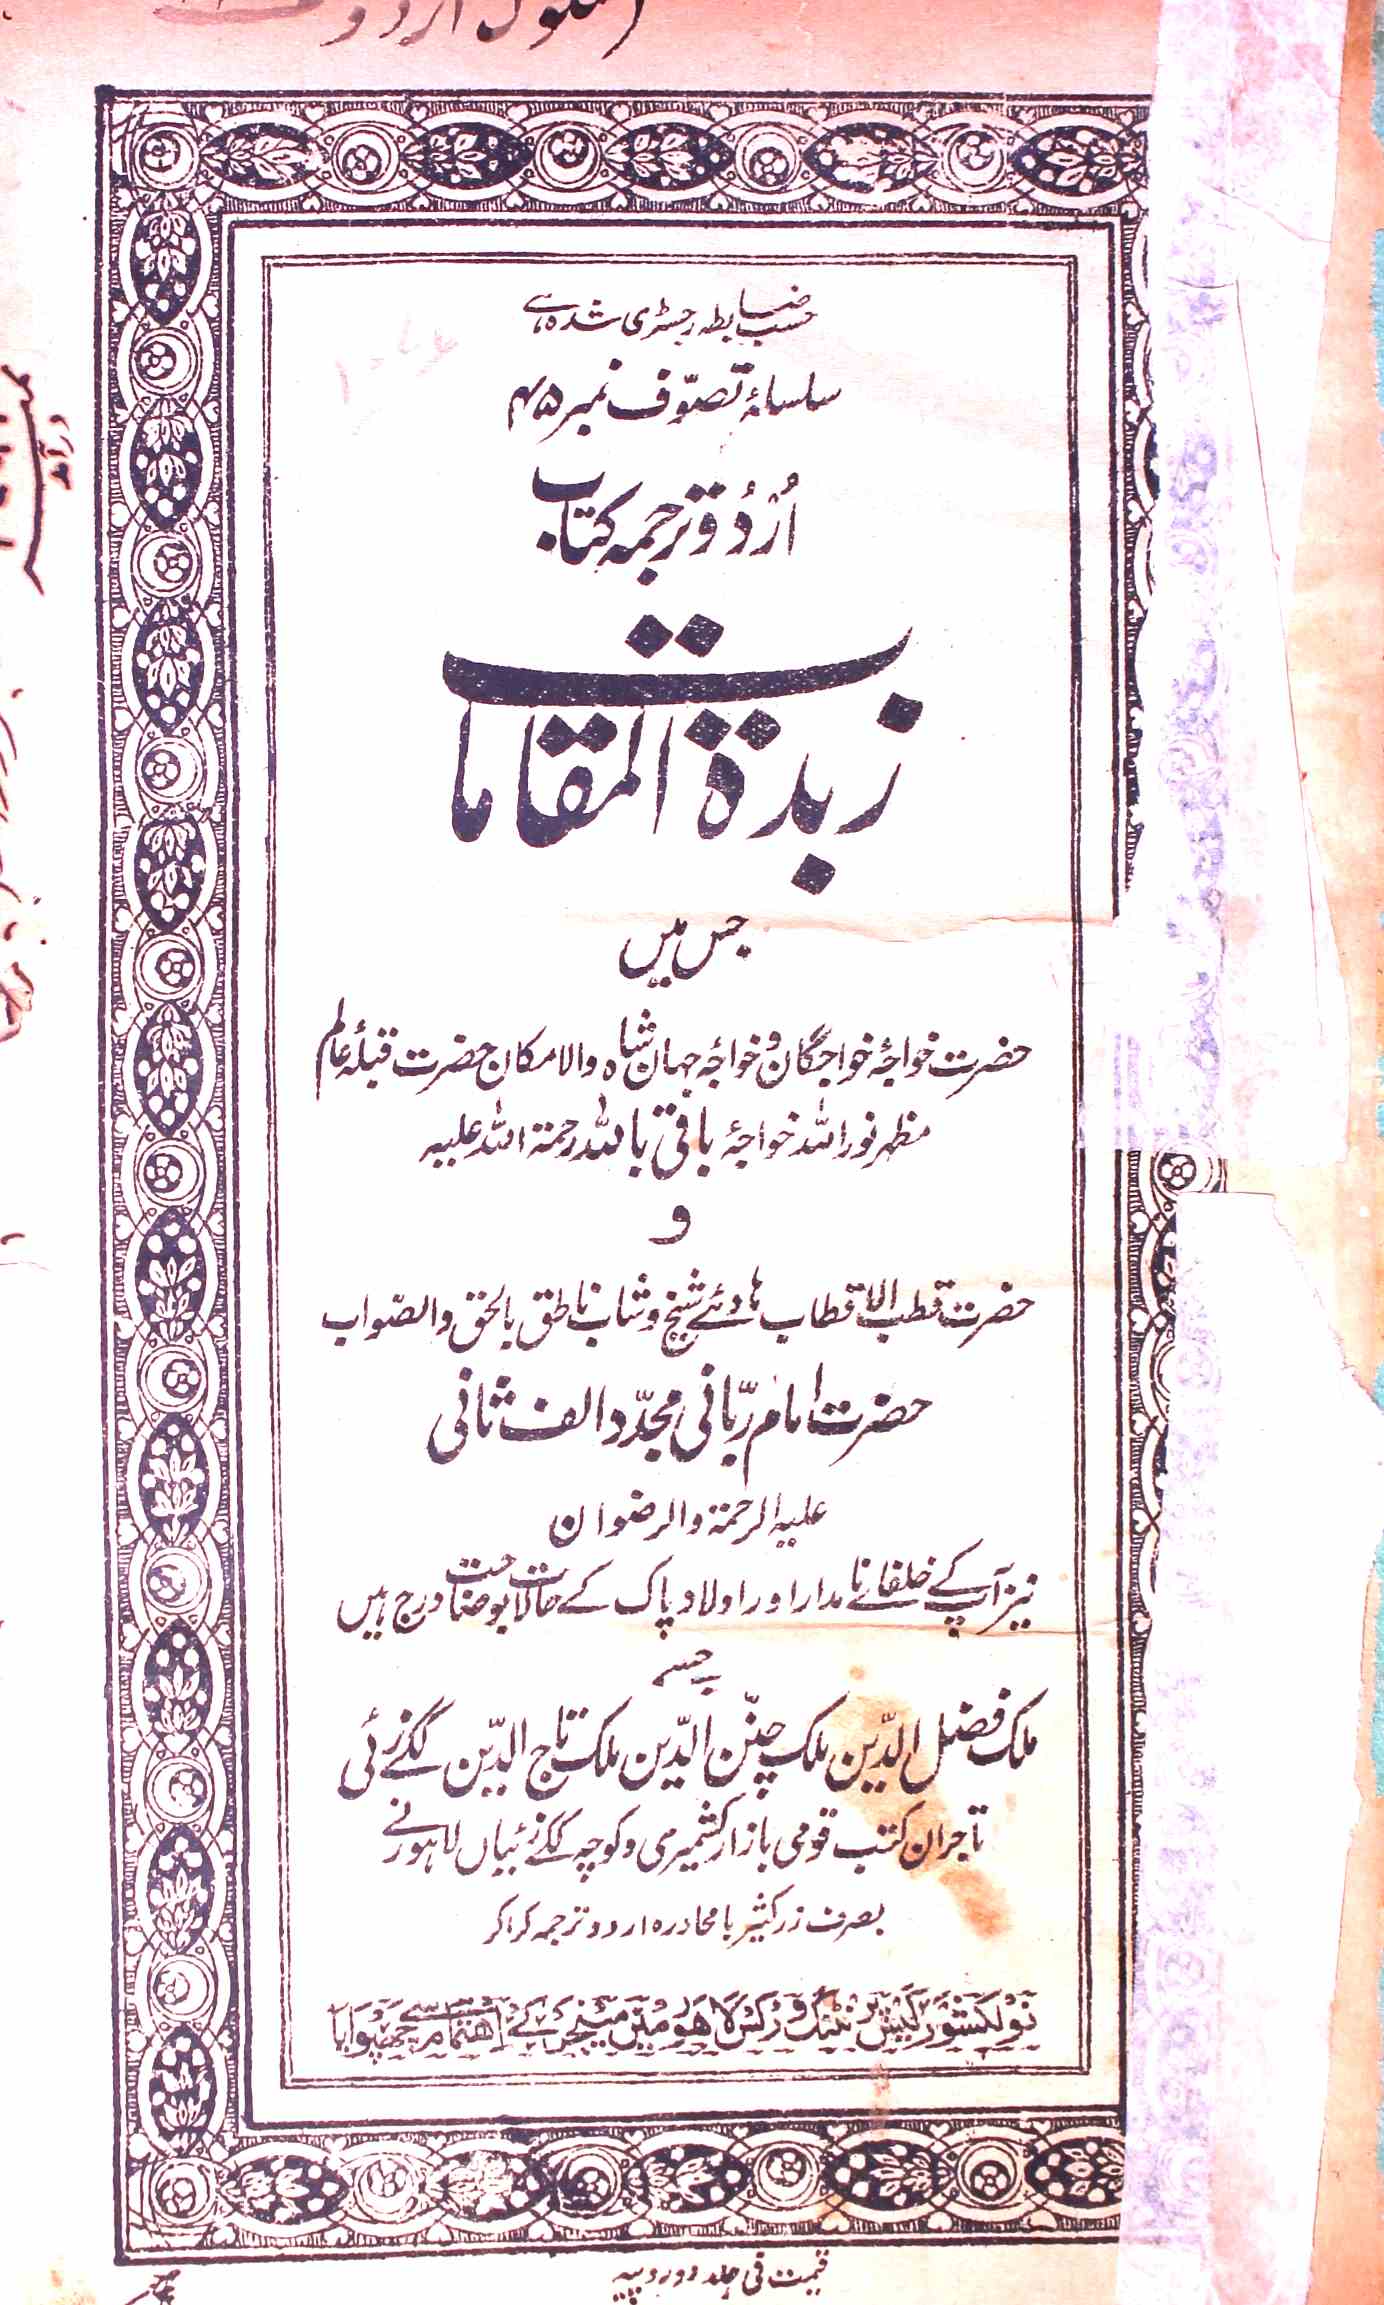 حسب ضابطہ رجسٹری شدہ ہے
سلسلۂ تصوّف نمبر ۴۵
اُردُو ترجمہ کتاب
زبدۃ المقامات
جس میں
حضرت خواجۂ خواجگان و خواجۂ جہان شاہ والا مکان حضرت قبلۂ عالم
مظہر نور اللہ خواجۂ باقی باللہ رحمۃ اللہ علیہ
و
حضرت قطب الاقطاب ہادئے شیخ و شاب ناطق بالحق والصّواب
حضرت امام ربّانی مجدّد الف ثانی
علیہ الرحمۃ والرضوان
نیز آپ کے خلفائے نامدار اور اولاد پاک کے حالات بوضاحت درج ہیں
جسے
ملک فضل الدّین ملک چنّن الدّین ملک تاج الدّین ککے زئی
تاجران کتب قومی بازار کشمیری و کوچہ ککے زئیاں لاہور نے
بصرف زر کثیر با محاورہ اردو ترجمہ کرا کر
نولکشور گیس پرنٹنگ ورکس لاہور میں مینیجر کے اہتمام سے چھپوایا
قیمت فی جلد دو روپیہ